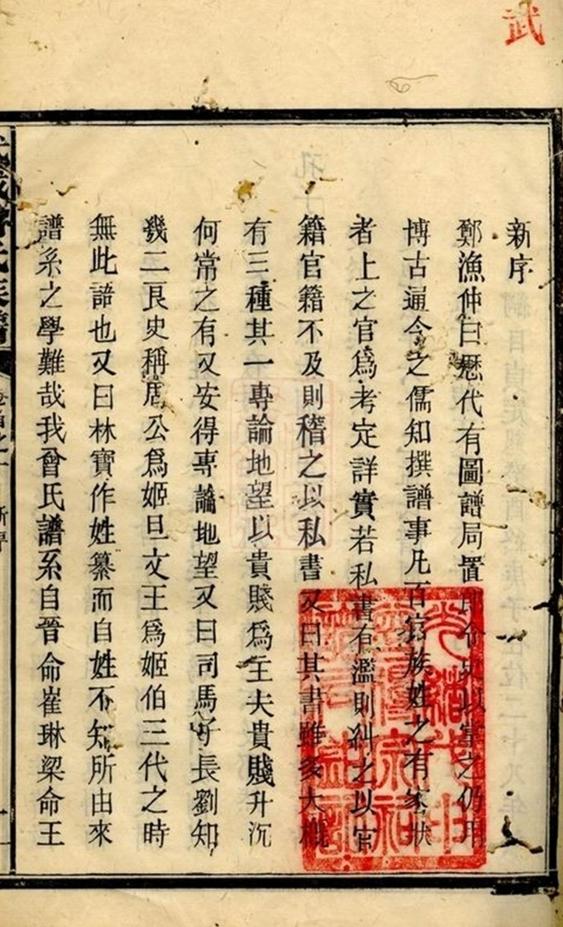 武
新序
鄭漁仲曰歷代有圖譜局置郎令史以掌之仍用
博古通今之儒知撰譜事凡百官族姓之有家狀
者上之官爲考定詳實若私書有濫則糾之以官
籍官籍不及則稽之以私書又曰其書雖多大槪
有三種其一專論地望以貴賤爲主夫貴賤升沉
何常之有又安得專論地望又曰司馬子長劉知
幾二良史稱周公爲姬旦文王爲姬伯三代之時
無此語也又曰林寶作姓纂而自姓不知所由來
譜系之學難哉我曾氏譜系自晉命崔琳梁命王
武城曾氏族譜
新序